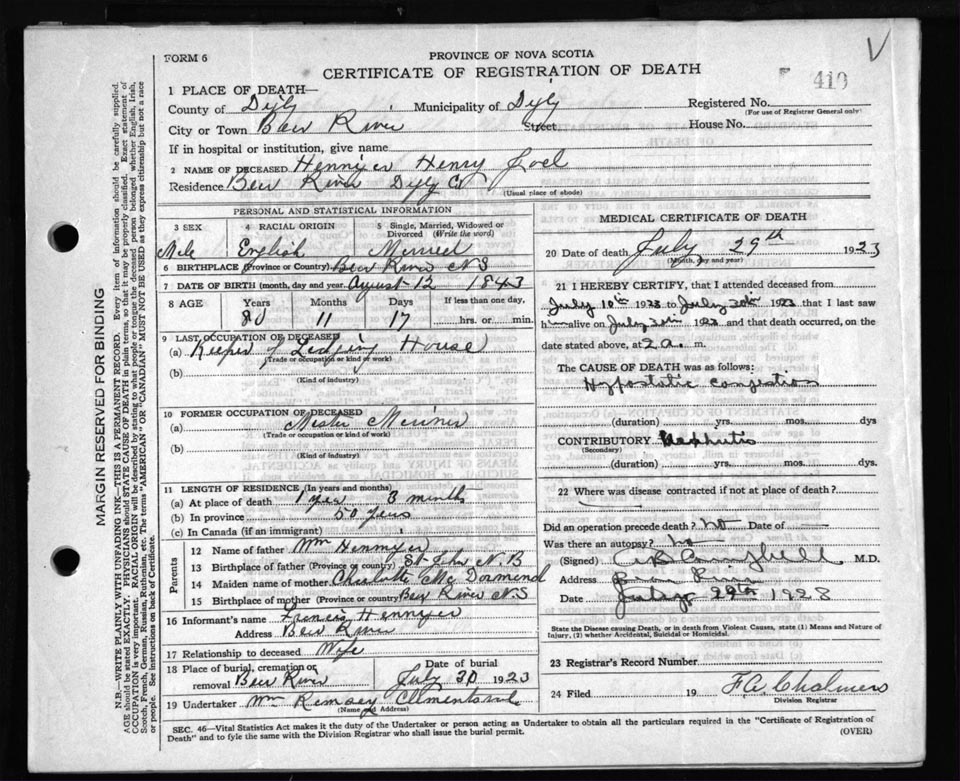 FORM 6
PROVINCE OF NOVA SCOTIA
CERTIFICATE OF REGISTRATION OF DEATH
410
1 PLACE OF DEATH—
County of Digby Municipality of Digby
Registered No.
(For use of Registrar General only)
City or Town Bear River Street House No.
If in hospital or institution, give name
2 NAME OF DECEASED Henry Joel
Residence Bear River Digby Co
(Usual place of abode)
PERSONAL AND STATISTICAL INFORMATION
3 SEX 4 RACIAL ORIGIN 5 Single, Married, Widowed or Divorced (Write the word)
Male English Married
6 BIRTHPLACE (Province or Country) Bear River N S
7 DATE OF BIRTH (month, day and year) August 12 1843
8 AGE Years Months Days If less than one day,
80 11 17 hrs. or min.
9 LAST OCCUPATION OF DECEASED
(a) Keeper of Lodging House
(Trade or occupation or kind of work)
(b)
(Kind of industry)
10 FORMER OCCUPATION OF DECEASED
(a) Master Mariner
(Trade or occupation or kind of work)
(b)
(Kind of industry)
11 LENGTH OF RESIDENCE (In years and months)
(a) At place of death 1 year 3 months
(b) In province 50 years
(c) In Canada (if an immigrant)
Parents
12 Name of father Wm
13 Birthplace of father (Province or country) St John N.B
14 Maiden name of mother Charlotte Mc Dormand
15 Birthplace of mother (Province or country) Bear River N.S
16 Informant's name
Address Bear River
17 Relationship to deceased Wife
18 Place of burial, cremation or removal Bear River Date of burial July 30 1923
19 Undertaker Wm Ramsey
(Name and Address)
MEDICAL CERTIFICATE OF DEATH
20 Date of death July 29th 1923
(Month, day and year)
21 I HEREBY CERTIFY, that I attended deceased from
July 10th to July that I last saw
him alive on July and that death occurred, on
date stated above, at 2 a. m.
The CAUSE OF DEATH was as follows:
Hypostatic congestion
(duration) yrs. mos. dys
CONTRIBUTORY Nephritis
(Secondary)
(duration) yrs. mos. dys.
22 Where was disease contracted if not at place of death?
Did an operation precede death? no Date of —
Was there an autopsy? no
(Signed) Campbell M.D.
Address Bear River
Date July 29th 1923
State the Disease causing Death, or in death from Violent Causes, state (1) Means and Nature of Injury, (2) whether Accidental, Suicidal or Homicidal.
23 Registrar's Record Number
24 Filed 19 Division Registrar
SEC. 46—Vital Statistics Act makes it the duty of the Undertaker or person acting as Undertaker to obtain all the particulars required in the "Certificate of Registration of
Death" and to fyle the same with the Division Registrar who shall issue the burial permit. (OVER)
MARGIN RESERVED FOR BINDING
N.B.—WRITE PLAINLY WITH UNFADING INK—THIS IS A PERMANENT RECORD. Every item of information should be carefully supplied.
AGE should be stated EXACTLY. PHYSICIANS should STATE CAUSE OF DEATH in plain terms, so that it may be properly classified. Exact statement of
OCCUPATION is very important. RACIAL ORIGIN will be described by stating to what people or tongue the deceased person belonged whether English, Irish,
Scotch, French, German, Russian, Ruthenian, etc. The terms "AMERICAN" or "CANADIAN" MUST NOT BE USED as they express citizenship but not a race
or people. See instructions on back of Certificate.